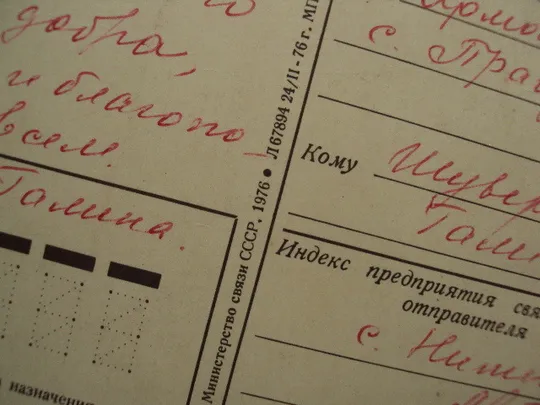 добра,
и благопо-
всем.
Галина.
назначения
Министерство связи СССР. 1976 • Л 67894 24/II-76 г. МП
с. Пра
Кому Шувер
Гали
Индекс предприятия свя
отправителя
с. Нижн